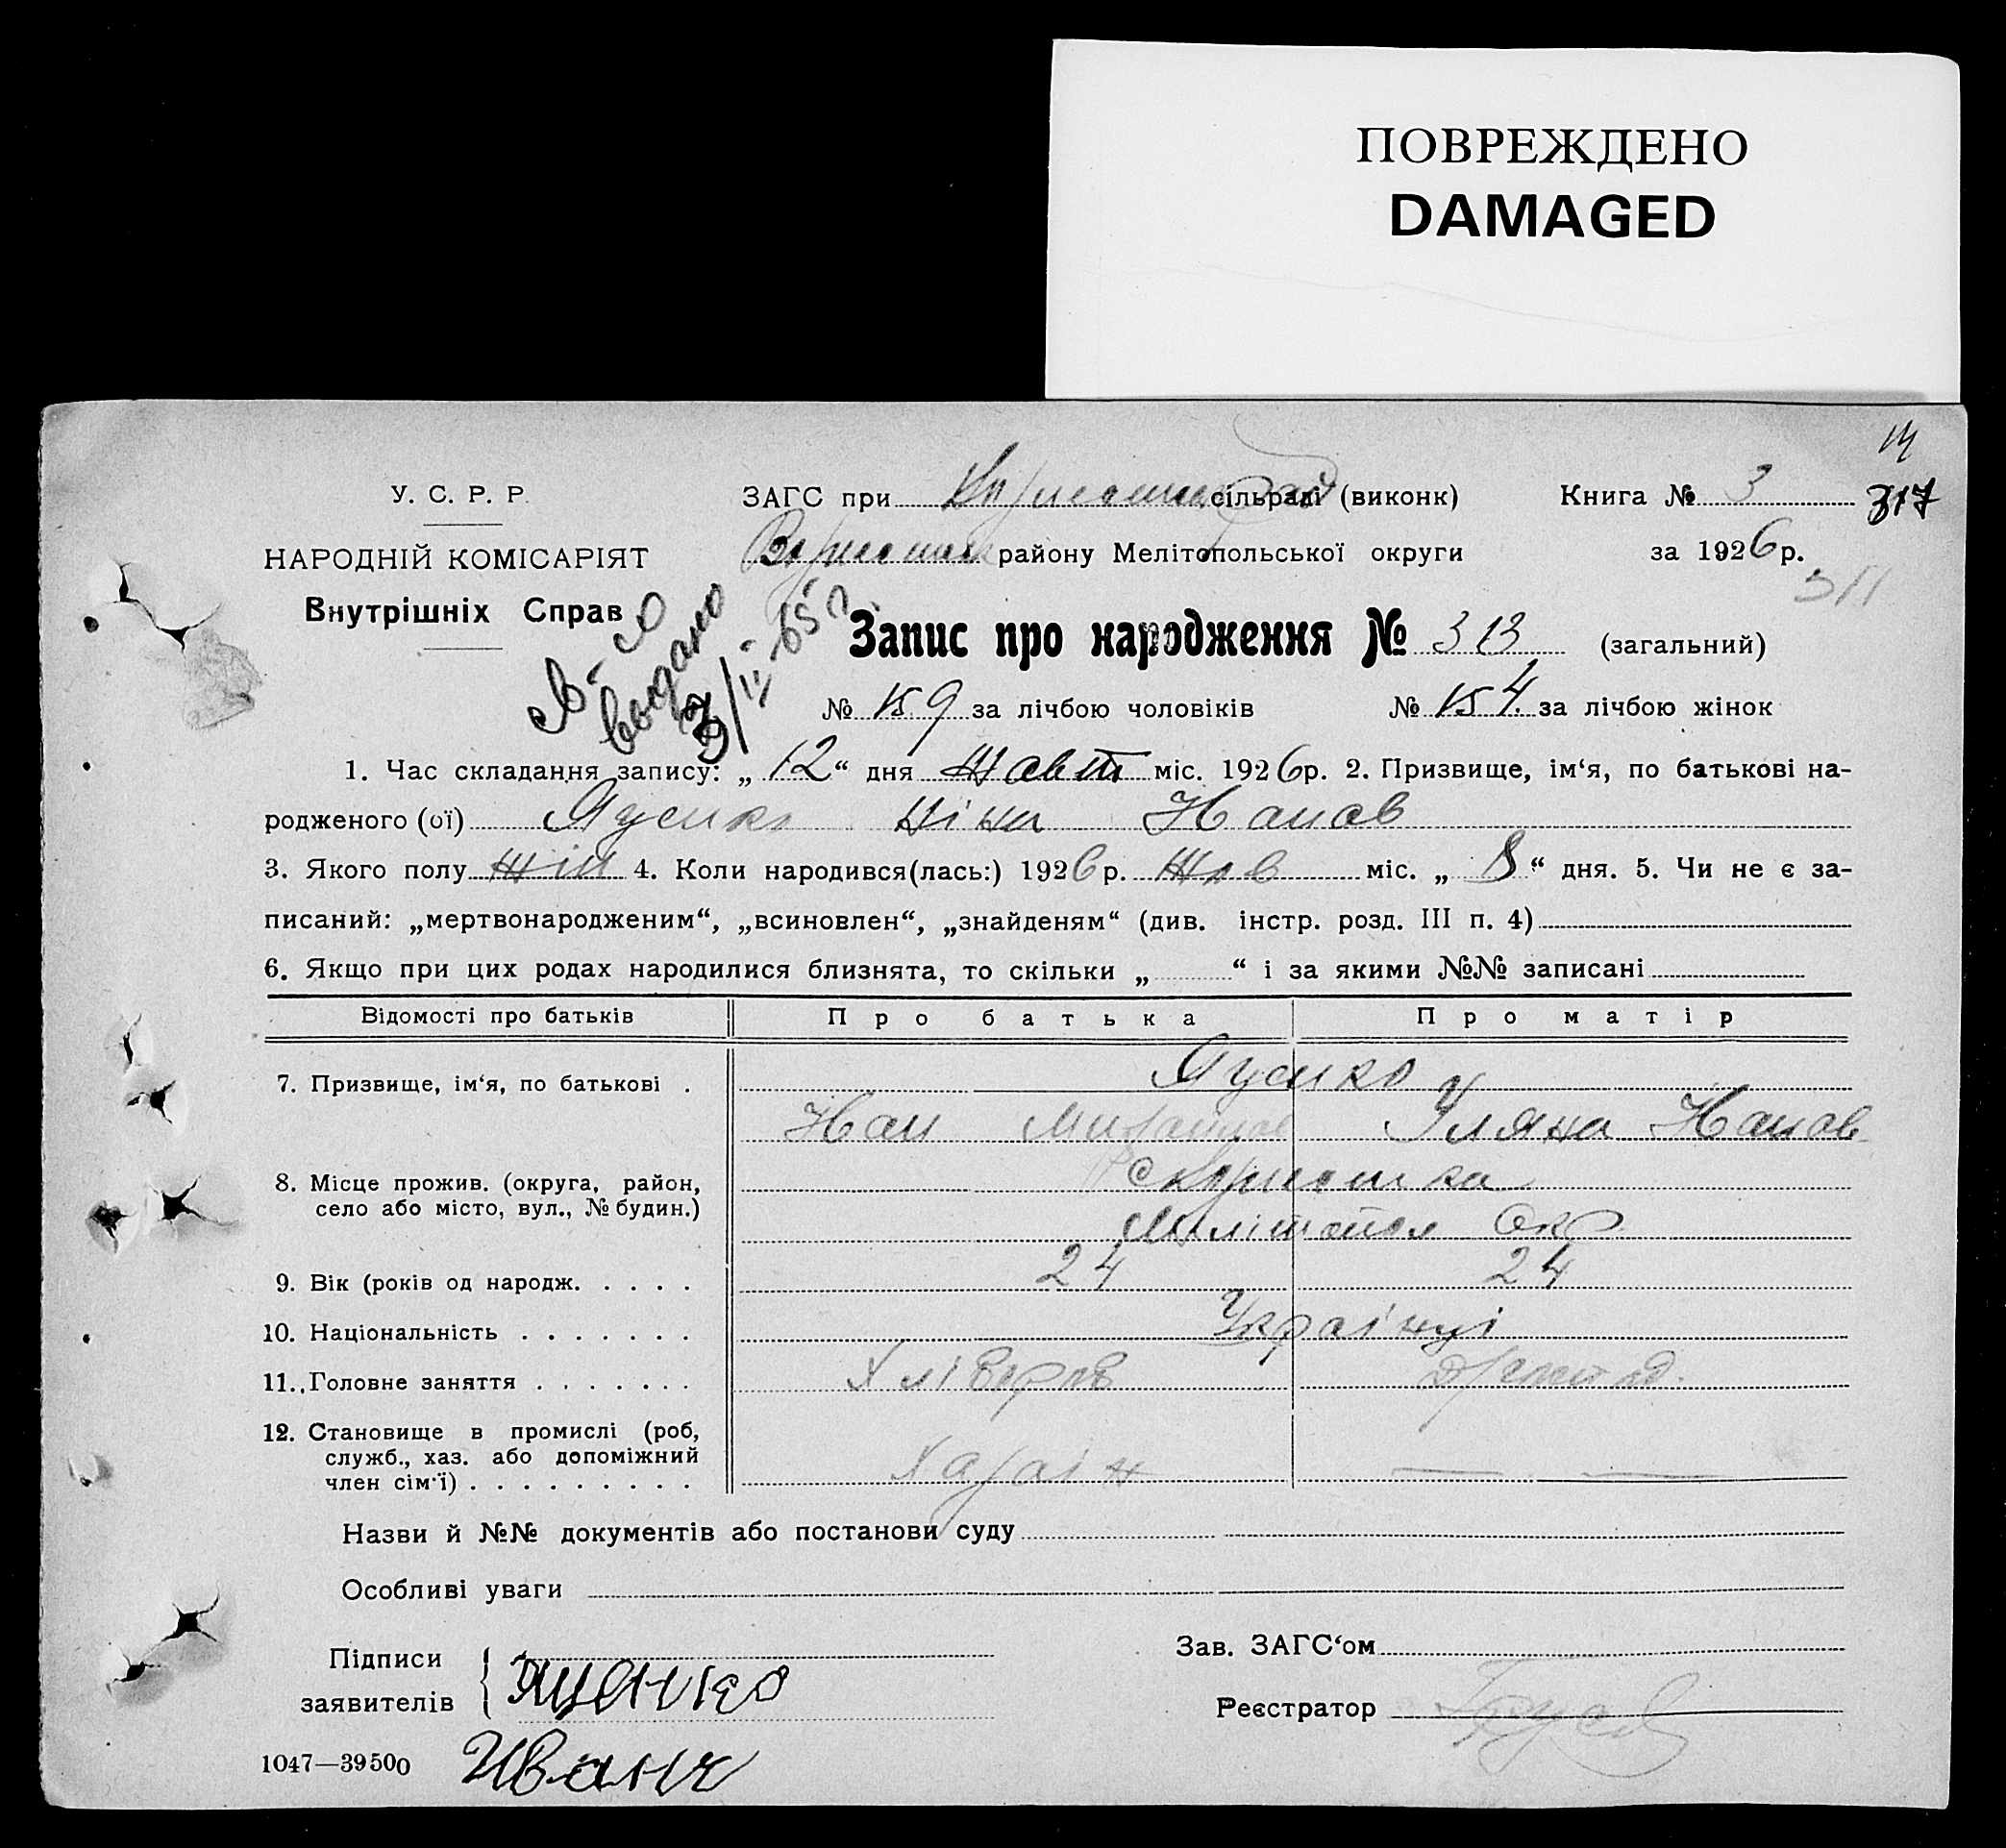 ПОВРЕЖДЕНО
DAMAGED
У. С. Р. Р.
НАРОДНІЙ КОМІСАРІЯТ
Внутрішніх Справ
ЗАГС при сільраді (виконк)
Книга № 3
317
району Мелітопольської округи
за 1926 р.
311
В-о
выдано
3/II-65 г.
Запис про народження № 313 (загальний)
№ 159 за лічбою чоловіків
№ 154 за лічбою жінок
1. Час складання запису: „ 12 “ дня Жовт міс. 1926 р. 2. Призвище, ім‘я, по батькові на-
родженого (ої) Яценко Ніна Иванов
3. Якого полу жін 4. Коли народився(лась:) 1926 р. Жов міс. „ 8 “ дня. 5. Чи не є за-
писаний: „мертвонародженим“, „всиновлен“, „знайденям“ (див. інстр. розд. III п. 4)
6. Якщо при цих родах народилися близнята, то скільки „ “ і за якими №№ записані
Відомості про батьків
Про батька
Про матір
7. Призвище, ім‘я, по батькові .
Яценко
Иван Михайлов Уляна Иванов
8. Місце прожив. (округа, район,
село або місто, вул., № будин.)
Мелітопол Окр
9. Вік (років од народж. . . . .
24 24
10. Національність . . . . . . .
Українці
11. Головне заняття . . . . . . .
Хлібороб
12. Становище в промислі (роб,
служб., хаз. або допоміжний
член сім‘ї) . . . . . . . . .
Хазаїн — —
Назви й №№ документів або постанови суду
Особливі уваги
Підписи
заявителів
Яценко
Иванъ
Зав. ЗАГС‘ом
Реєстратор
1047—39500